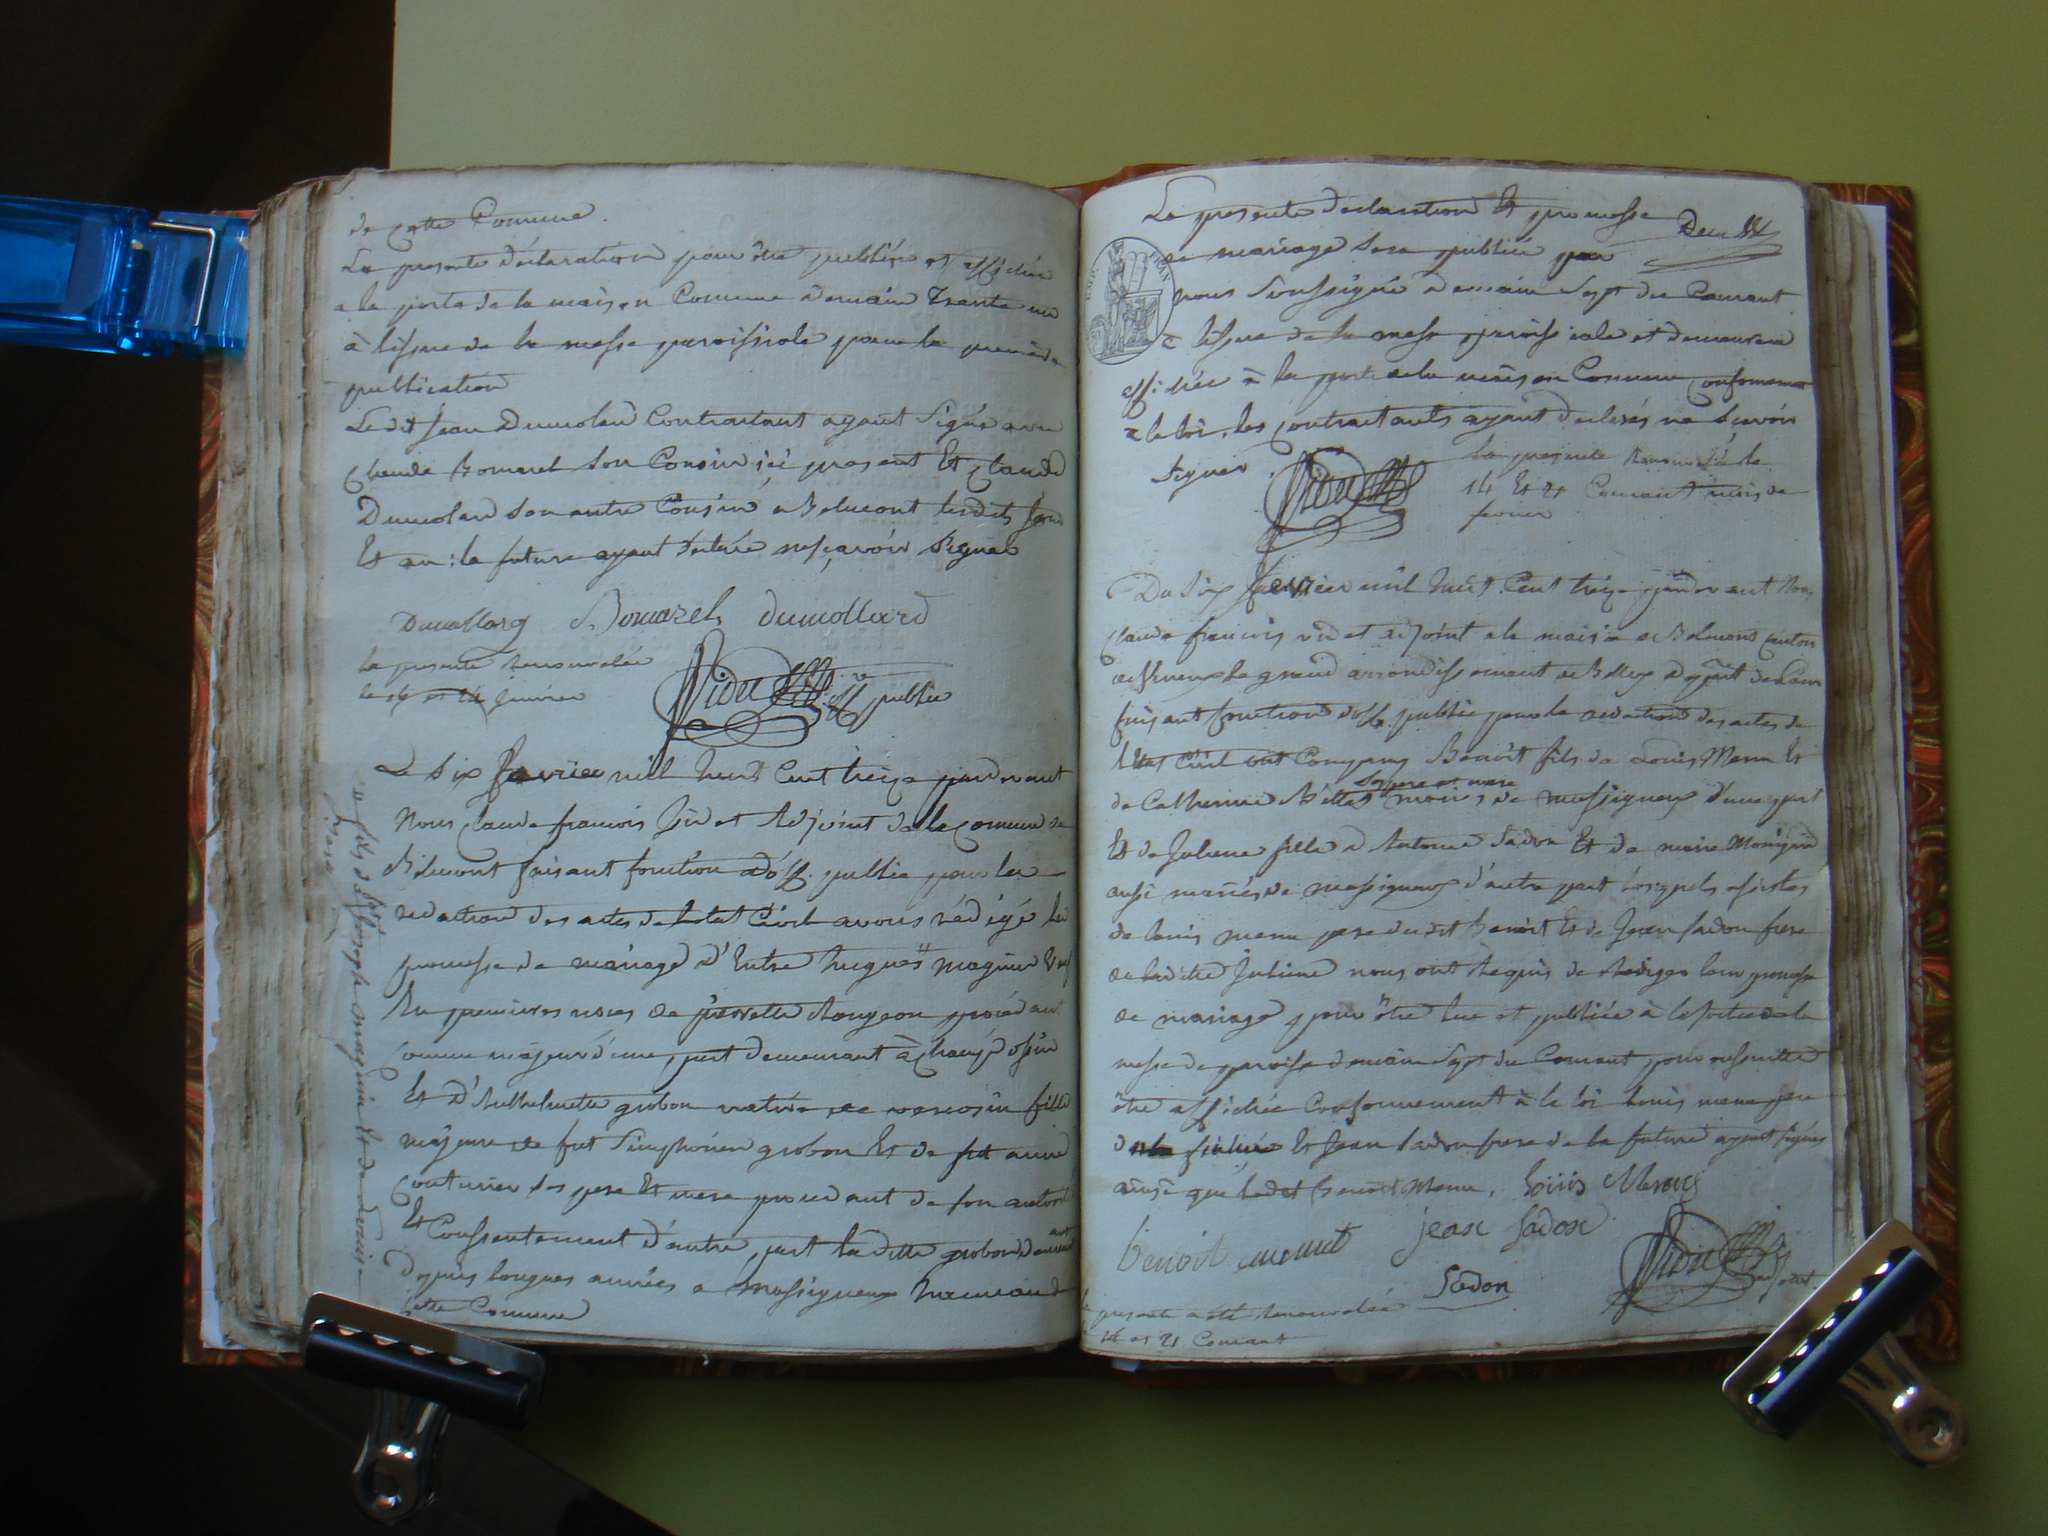 de cette Comune.
La presente déclaration pour être publiée et affichée
a la porte de la maison Comune demain Trante un
à lissue de la messe paroissiale pour la premiere
publication
Ledit Jean Dumolard Contractant ayant Signé avec
Claude Bomarel son Cousin ici present Et Claude
Dumolard son autre Cousin, a Belmont lesdits jour
Et an : la future ayant declaré ne sçavoir Signer
Dumollard Bomarel dumollard
la presente renouvelée
le 16 et 24 janvier
Videt off publie
Le Six fevrier mill huit Cent treize pardevant
Nous Claude francois Videt Adjoint de la comune de
Belmont faisant fonction d'off. publie pour la
redaction des actes de letat Civil avons rédigé la
promesse de mariage d'Entre hugues magnin veuf
En premieres noces de pierrette Rougeon procédant
comme majeur d'une part demeurant à
Et d'Anthelmette grobon native de fille
majeure de fut Simphorien grobon Et de fut anne
couturier ses pere Et mere procedant de son autorité
Et Consentement d'autre part la ditte grobon demeurant
Depuis longues années a Massignieux hameau de
cette Comune
fils de Joseph magnin Et de Louise
La presente declaration Et promesse
de mariage sera publiée par
nous Soussigné demain Sept du Courant
a lissue de la messe paroissiale et demeurera
affichée à la porte de la maison Comune conformement
a la loi, les contractants ayant declarés ne Scavoir
Signer.
Videt
la presente Renouvelée le
14 Et 21 Courant mois de
fevrier
Du Six fevrier mil huit Cent treize pardevant Nous
Claude francois videt adjoint a la mairie de Belmont Canton
de Virieu le grand arrondissement de Belley depart de Lain
faisant fonction d'off. publie pour la redaction des actes de
l'Etat Civil ont Comparus Benoit fils de Louis Menu Et
de Catherine ses pere et mere mariés de Massignieux d'une part
Et de Juliene fille d'Antoine Sadon Et de marie
aussi mariés, de Massignieux d'autre part lesquels assistés
de louis menu pere dudit Benoit Et de Jean sadon frere
de ladite Juliene nous ont Requis de Rediger leur promesse
de mariage pour être lue et publiée à la sortie de la
messe de paroisse demain Sept du Courant pour ensuitte
être affichée Conformement à la loi louis menu pere
Et Jean sadon frere de la future ayant signés
ainsi que ledit benoit Menu. loüis Menu
benoit menut jean Sadon
Sadon
Videt adjoint
la presente a été renouvelée
14 et 21 Courant